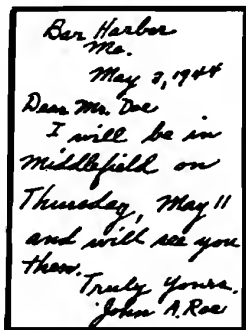 Bar Harbor
Me.
May 2, 1944
Dear Mr. Doe
I will be in
Middlefield on
Thursday, May 11
and will see you
then.
Truly yours,
John A. Roe